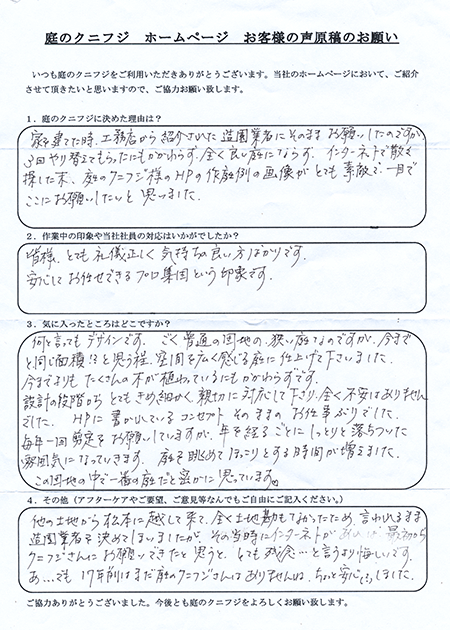 庭のクニフジ　ホームページ　お客様の声原稿のお願い
いつも庭のクニフジをご利用いただきありがとうございます。当社のホームページにおいて、ご紹介
させて頂きたいと思いますので、ご協力お願い致します。
1．庭のクニフジに決めた理由は？
家を建てた時、工務店から紹介された造園業者にそのままお願いしたのですが
3回やり替えてもらったにもかかわらず、全く良い庭にならず、インターネットで散々
探した末、庭のクニフジ様のHPの作庭例の画像がとても素敵で、一目で
ここにお願いしたいと思いました。
2．作業中の印象や当社社員の対応はいかがでしたか？
皆様、とても礼儀正しく気持ちの良い方ばかりです。
安心してお任せできるプロ集団という印象です。
3．気に入ったところはどこですか？
何と言ってもデザインです。ごく普通の団地の狭い庭なのですが、今まで
と同じ面積!?と思う程、空間を広く感じる庭に仕上げて下さいました。
今までよりもたくさんの木が植わっているにもかかわらずです。
設計の段階からとてもきめ細かく、親切に対応して下さり、全く不安はありません
でした。HPに書かれているコンセプトそのままのお仕事ぶりでした。
毎年一回剪定をお願いしていますが、年を経るごとにしっとりと落ちついた
雰囲気になっていきます。庭を眺めてほっこりとする時間が増えました。
この団地の中で一番の庭だと密かに思っています。
4．その他（アフターケアやご要望、ご意見等なんでもご自由にご記入ください。）
他の土地から松本に越して来て、全く土地勘もなかったため、言われるまま
造園業者を決めてしまいましたが、その当時にインターネットがあれば、最初から
クニフジさんにお願いできたと思うと、とても残念…と言うより悔しいです。
あ…でも17年前はまだ庭のクニフジさんはありませんね、ちょっと安心しました。
ご協力ありがとうございました。今後とも庭のクニフジをよろしくお願い致します。